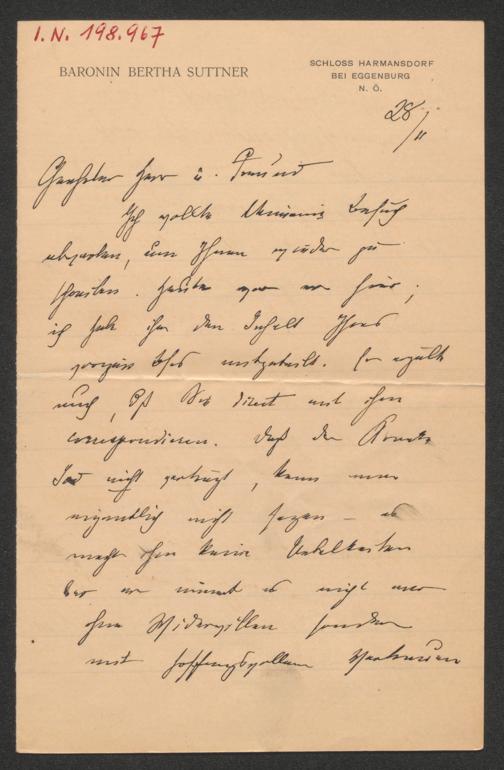 I.N. 198.967
BARONIN BERTHA SUTTNER
SCHLOSS HARMANSDORF
BEI EGGENBURG
N. Ö.
28/11
Geehrter Herr u. Freund
Ich wollte Besuch
abwarten, um Ihnen wieder zu
schreiben. Heute war er hier;
ich hab ihm den Inhalt Ihres
mitgeteilt. Er erzählt
mich, daß Sie direct mit ihm
correspondieren. Daß der Kranke
Jod nicht verträgt, kann man
eigentlich nicht sagen – es
macht ihm keine Uebelkeiten
er nimmt es nicht nur
ohne Widerwillen sondern
mit hoffnungsvollem Vertrauen